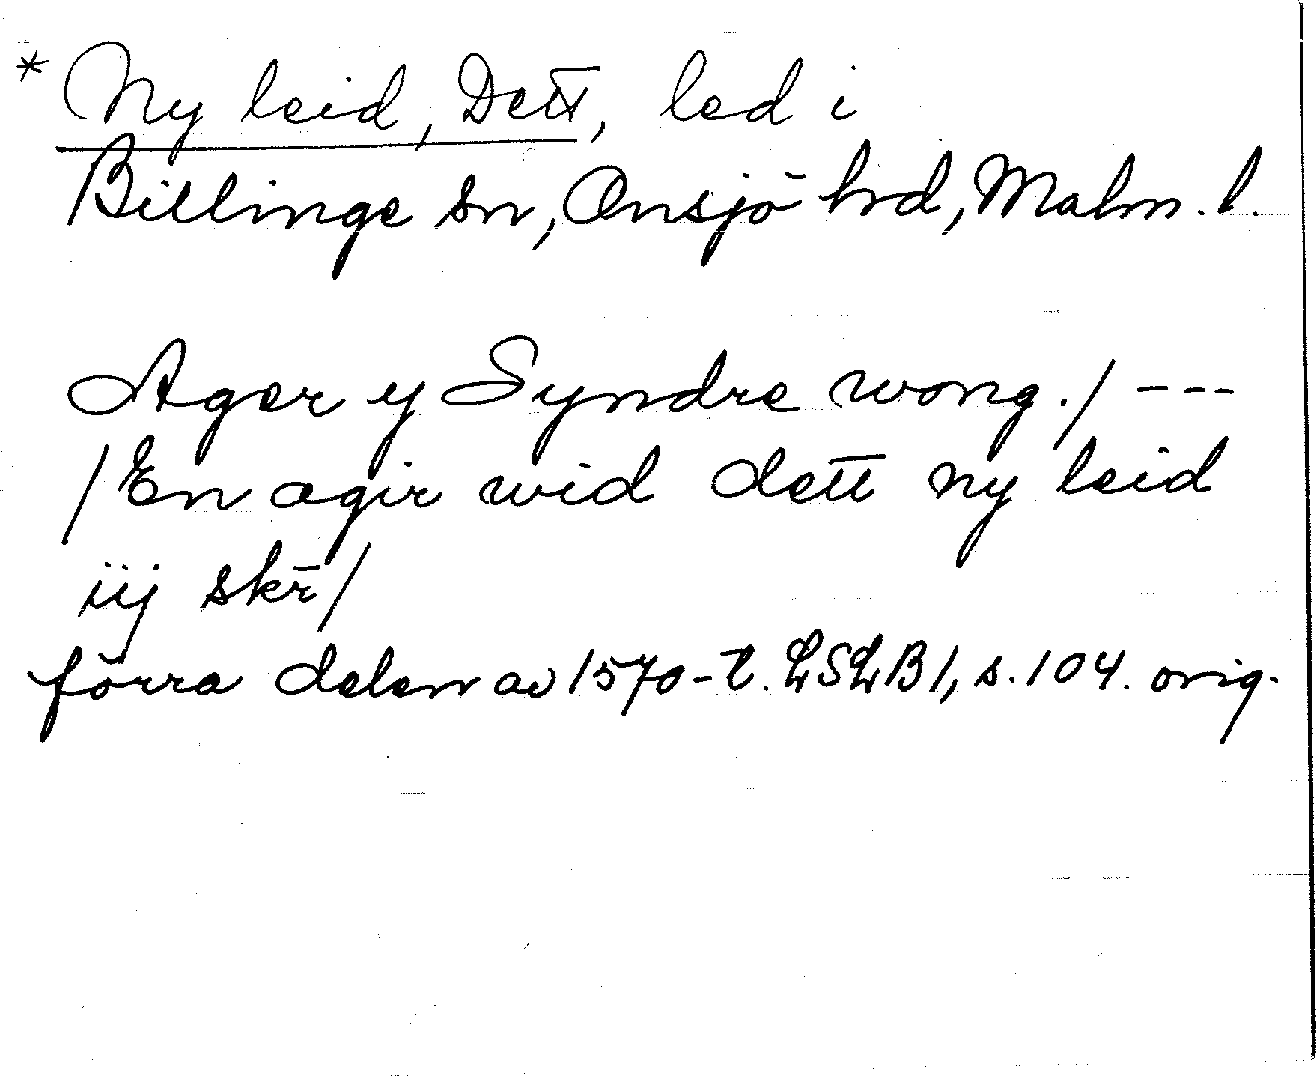 * Ny leid, Dett, led i
Billinge sn, Onsjö hrd, Malm. l.
Ager y Syndre wong ./ ---
/ En agir wid dett ny leid
iij skr̄ /
förra delen av 1570-t. LSLB 1, s. 104. orig.